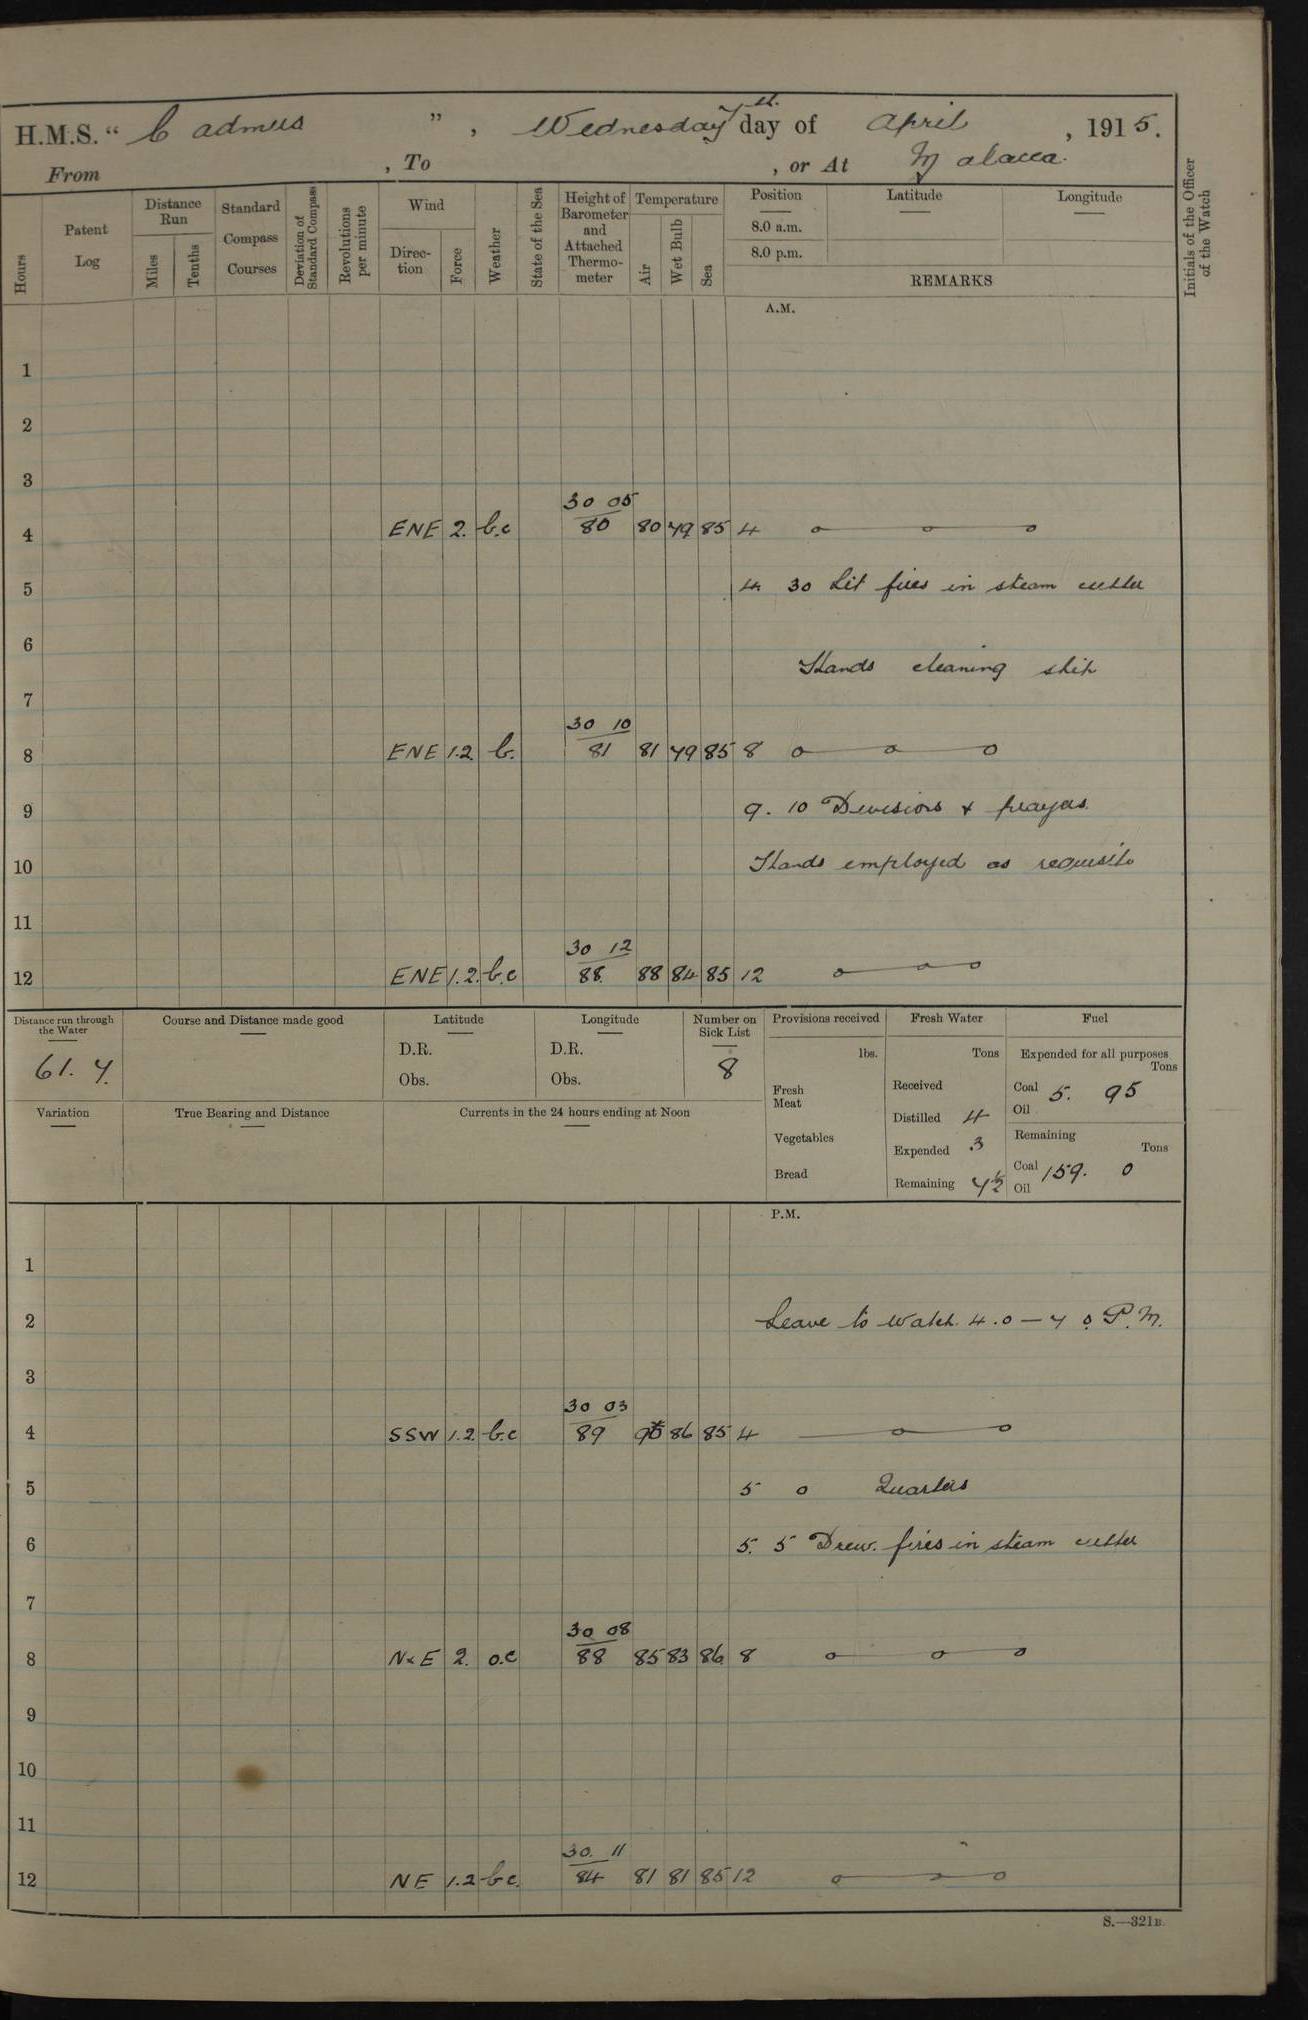 H.M.S. "Cadmus", Wednesday 7th day of April, 1915.
From , To , or At Malacca.
Hours
Patent Log
Distance Run
Miles
Tenths
Standard Compass Courses
Deviation of Standard Compass
Revolutions per minute
Wind
Direction
Force
Weather
State of the Sea
Height of Barometer and Attached Thermometer
Temperature
Air
Wet Bulb
Sea
Position
8.0 a.m.
8.0 p.m.
Latitude
Longitude
REMARKS
Initials of the Officer of the Watch
A.M.
1
2
3
30 05
4 ENE 2. b.c 80 80 79 85 4
5 4 30 Lit fires in steam cutter
6
Hands cleaning ship
7
30 10
8 ENE 1.2. b. 81 81 79 85 8
9 9.10 Divisions & prayers.
10 Hands employed as requisite
11
30 12
12 ENE 1.2. b.c 88. 88 84 85 12
Distance run through the Water
61. 7.
Course and Distance made good
Latitude
D.R.
Obs.
Longitude
D.R.
Obs.
Number on Sick List
8
Provisions received
lbs.
Fresh Meat
Vegetables
Bread
Fresh Water
Tons
Received
Distilled 4
Expended 3
Remaining 7½
Fuel
Expended for all purposes
Tons
Coal 5. 95
Oil
Remaining
Tons
Coal 159. 0
Oil
Variation
True Bearing and Distance
Currents in the 24 hours ending at Noon
P.M.
1
2 Leave to Watch. 4.0 — 7 0. P.M.
3
30 03
4 SSW 1.2. b.c 89 86 85 4
5 5 0 Quarters
6 5. 5 Drew. fires in steam cutter
7
30 08
8 NxE 2. o.c 88 85 83 86. 8
9
10
11
30. 11
12 NE 1.2 b c. 84 81 81 85 12
S.—321B.